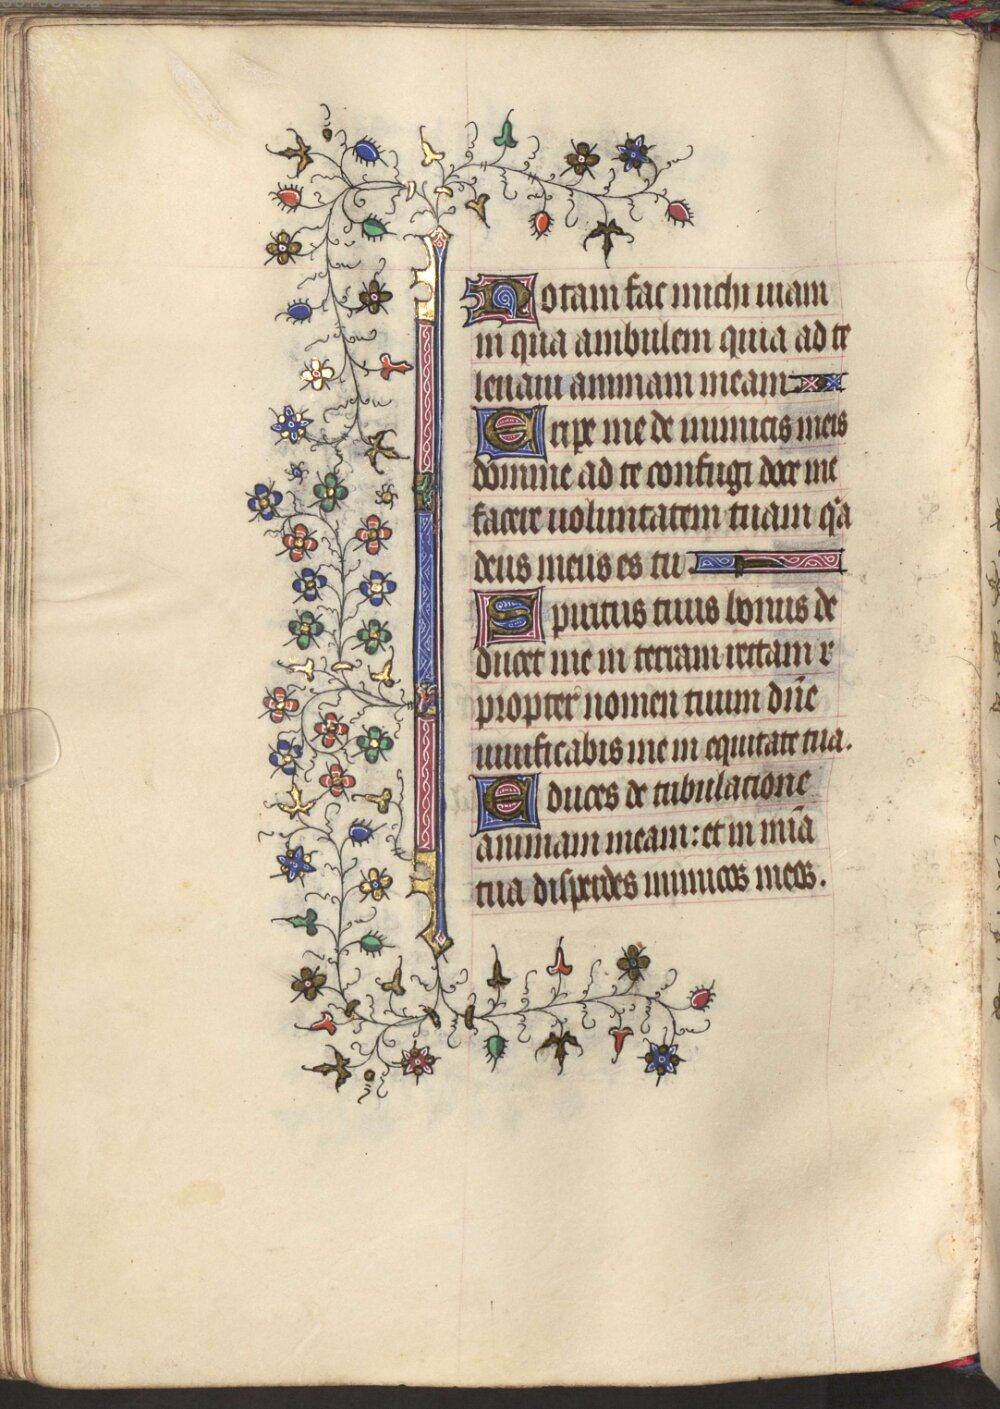 Notam fac michi uiam
in qua ambulem quia ad te
leuaui animam meam
Eripe me de inimicis meis
domine ad te confugi doce me
facere uoluntatem tuam qͣa
deus meus es tu
Spiritus tuus bonus de
ducet me in terram rectam ꝛ
propter nomen tuum dn̄e
uiuificabis me in equitate tua.
Educes de tribulatione
animam meam: et in mi̅a
tua disperdes inimicos meos.